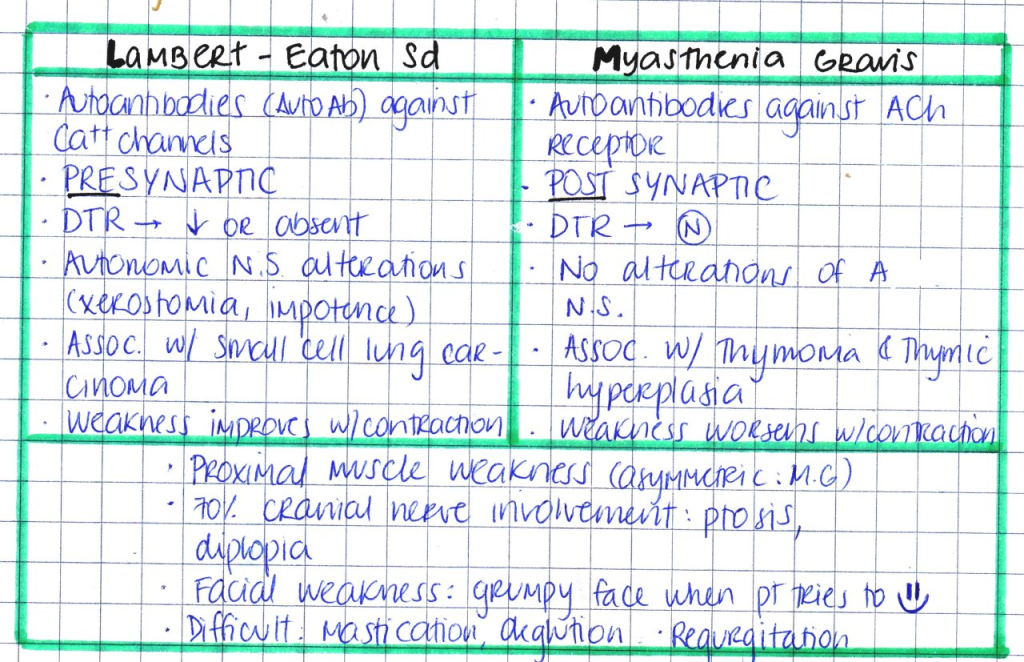 LAMBERT - EATON Sd
· Autoantibodies (AutoAb) against
Ca++ channels
· PRESYNAPTIC
· DTR → ↓ OR absent
· Autonomic N.S. alterations
(xerostomia, impotence)
· ASSOC. w/ small cell lung car-
cinoma
· Weakness improves w/contraction
Myasthenia Gravis
· Autoantibodies against ACh
receptor
· POST SYNAPTIC
· DTR → N
· No alterations of A
N.S.
· ASSOC. w/ Thymoma & Thymic
hyperplasia
· Weakness worsens w/contraction
· Proximal muscle weakness (asymmetric: M.G)
· 70% cranial nerve involvement: ptosis,
diplopia
· Facial weakness: grumpy face when pt tries to
· Difficult: Mastication, deglution · Regurgitation